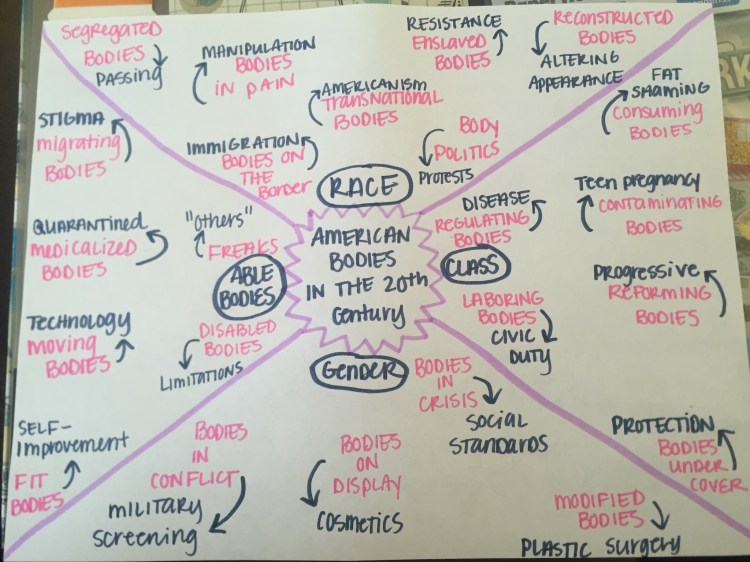 Segregated
BODIES
PASSING
MANIPULATION
BODIES
IN PAIN
AMERICANISM
Transnational
BODIES
IMMIGRATION
BODIES ON
THE
Border
RESISTANCE
Enslaved
BODIES
BODY
POLITICS
Protests
RECONSTRUCTED
BODIES
ALTERING
APPEARANCE
RACE
STIGMA
migrating
BODIES
QUARANTINED
medicalized
BODIES
"Others"
FREAKS
ABLE
BODIES
TECHNOLOGY
moving
BODIES
DISABLED
BODIES
LIMITATIONS
AMERICAN
BODIES
IN THE 20th
Century
FAT
SHAMING
Consuming
BODIES
DISEASE
REGULATING
BODIES
Teen pregnancy
CONTAMINATING
BODIES
CLASS
Progressive
REFORMING
BODIES
LABORING
BODIES
CIVIC
DUTY
GENDER
BODIES
IN
CRISIS
SOCIAL
STANDARDS
SELF-
Improvement
FIT
BODIES
BODIES
IN
CONFLICT
MILITARY
SCREENING
BODIES
ON
DISPLAY
COSMETICS
PROTECTION
BODIES
UNDER
COVER
MODIFIED
BODIES
PLASTIC Surgery